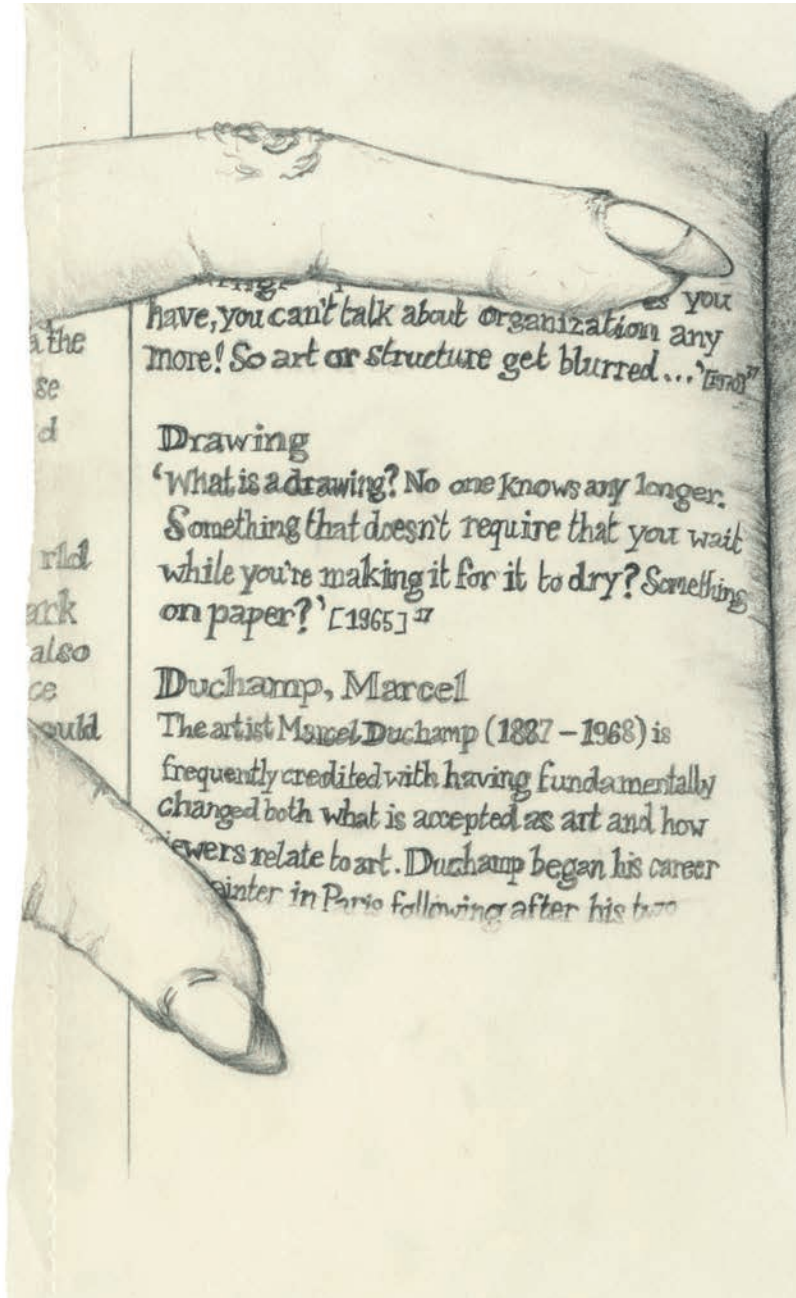 a the
se
d
rld
ark
also
ce
ould
es you
have, you can't talk about organization any
more! So art or structure get blurred...'
Drawing
'What is a drawing? No one knows any longer.
Something that doesn't require that you wait
while you're making it for it to dry? Something
on paper?' [1965] 17
Duchamp, Marcel
The artist Marcel Duchamp (1887 – 1968) is
frequently credited with having fundamentally
changed both what is accepted as art and how
iewers relate to art. Duchamp began his career
ainter in Paris following after his two